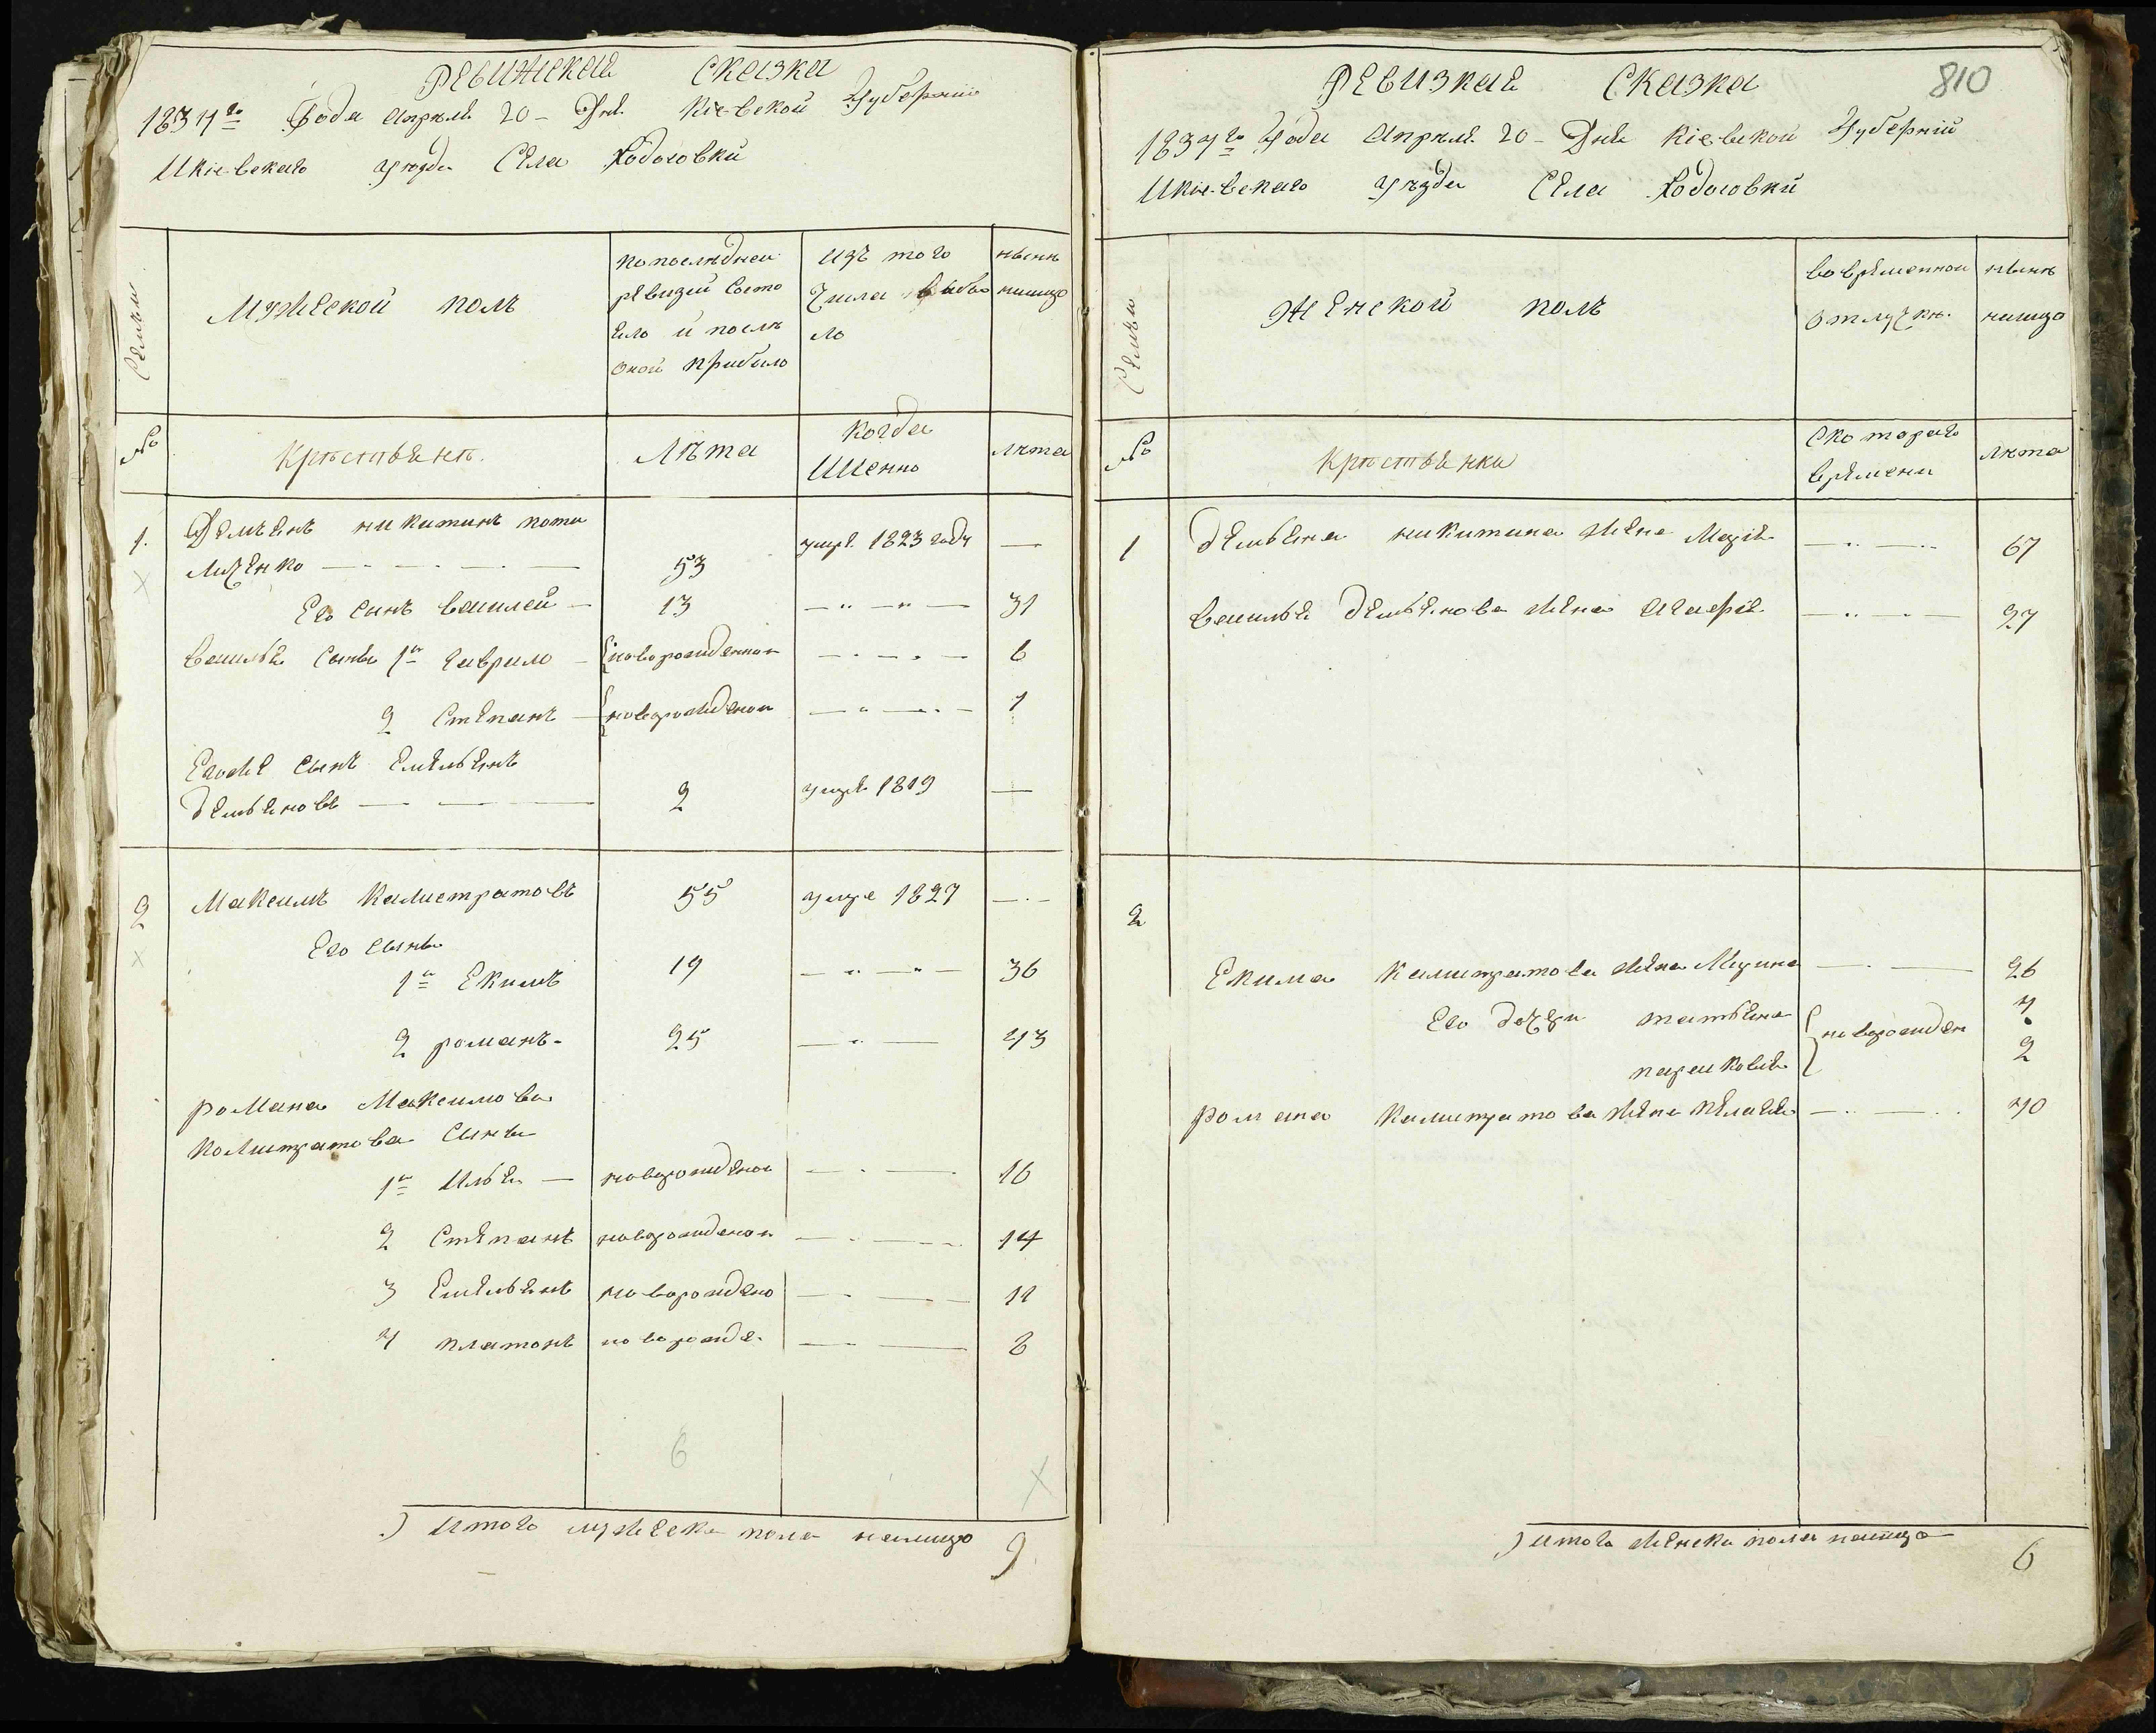 Ревижская Сказка
1834го Года Апреля 20 Дня Кіевской Губерніи
И Кіевскаго уѣзда Села Ходосовки
Семьи
Мужеской полъ
по последней
ревизіи состо
яло и послѣ
оной прибыло
изъ того
числа выбы
ло
нынѣ
налицо
№
Крѣстьянѣ.
Лѣта
Когда
Именно
Лѣта
1. Демьянъ Никитинъ
53 умре 1823 году —
Его сынъ Василей 13 31
Василья Сыны 1й Гаврило новорожденной 6
2 Степанъ новорожденой 1
Егоже Сынъ Емельянъ
Демьяновъ 2 умре 1819 —
2 Максимъ Калистратовъ 55 умре 1827
Его Сыны
1й Екимъ 19 36
2 романъ 25 43
романа Максимова
Колистратова Сыны
1й Илья новорожденой 16
2 Степанъ новорожденой 14
3 Емельянъ новорождено 11
4 платонъ новорожде. 8
6
Итого мужеска пола налицо 9
810
Ревизкая Сказка
1834го Года Апреля 20 Дня Кіевской Губерній
И Кіевскаго уѣзда Села Ходосовки
Семьи
Женской полъ
во врѣменной
отлучкѣ.
нынѣ
налицо
№
Крѣстьянки
Скотораго
врѣмени
Лѣта
1 Демьяна Никитина жена Марія 67
Василья Демьянова жена Агафія 27
2
Екима Калистратова жена 26
Его дочери татьяна новорожден 4
парасковія 2
романа Калистратова жена пелагея 40
Итого женска пола налицо 6